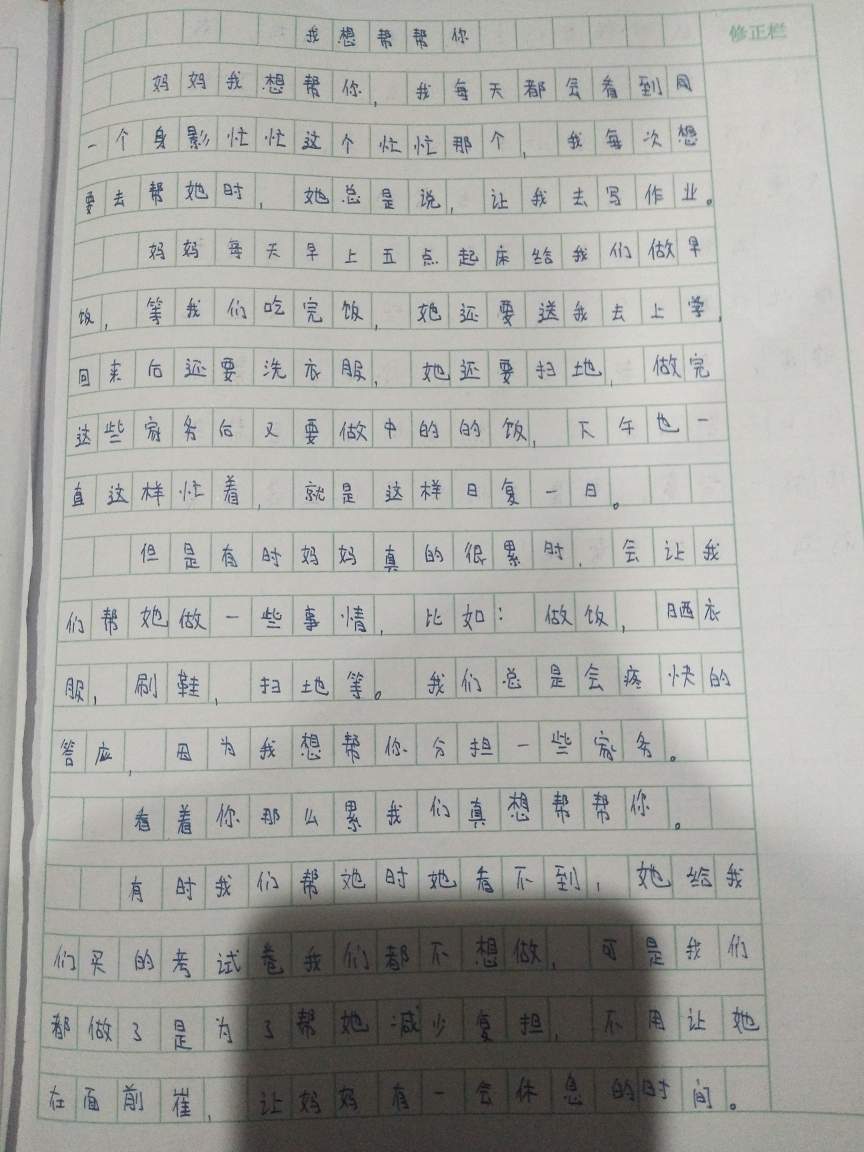 我想帮帮你
修正栏
妈妈我想帮你，我每天都会看到同
一个身影忙忙这个忙忙那个，我每次想
要去帮她时，她总是说，让我去写作业。
妈妈每天早上五点起床给我们做早
饭，等我们吃完饭，她还要送我去上学，
回来后还要洗衣服，她还要扫地，做完
这些家务后又要做中的的饭，下午也一
直这样忙着，就是这样日复一日。
但是有时妈妈真的很累时，会让我
们帮她做一些事情，比如：做饭，晒衣
服，刷鞋，扫地等。我们总是会疼快的
答应，因为我想帮你分担一些家务。
看着你那么累我们真想帮帮你。
有时我们帮她时她看不到，她给我
们买的考试卷我们都不想做，可是我们
都做了是为了帮她减少复担，不用让她
在面前崔，让妈妈有一会休息的时间。